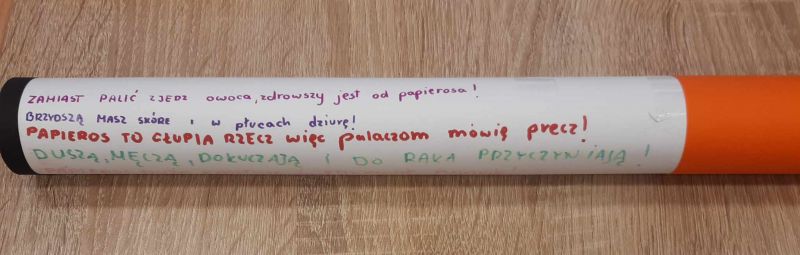 ZAMIAST PALIĆ ZJEDZ owoca, zdrowszy jest od papierosa!
BRZYDSZĄ MASZ SKÓRE i w płucach dziurę!
PAPIEROS TO GŁUPIA RZECZ więc palaczom mówię precz!
DUSZĄ, MĘCZĄ, DOKUCZAJĄ I DO RAKA PRZYCZYNIAJĄ!